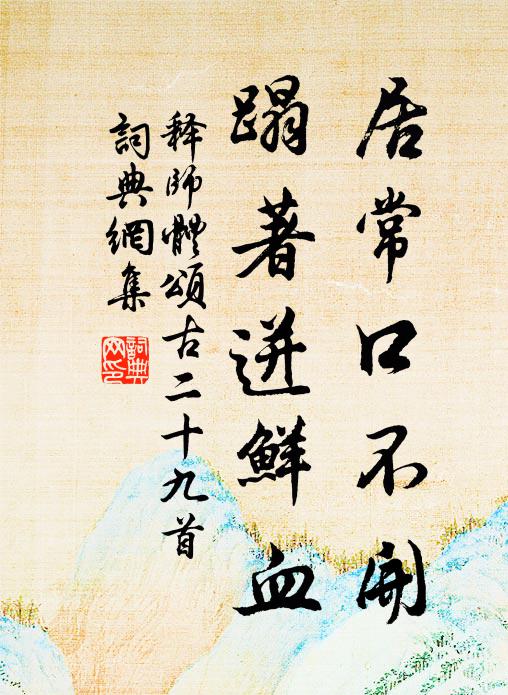 居常口不開
蹋著迸鮮血
释師體頌古二十九首
詞典網集
詞典
网印